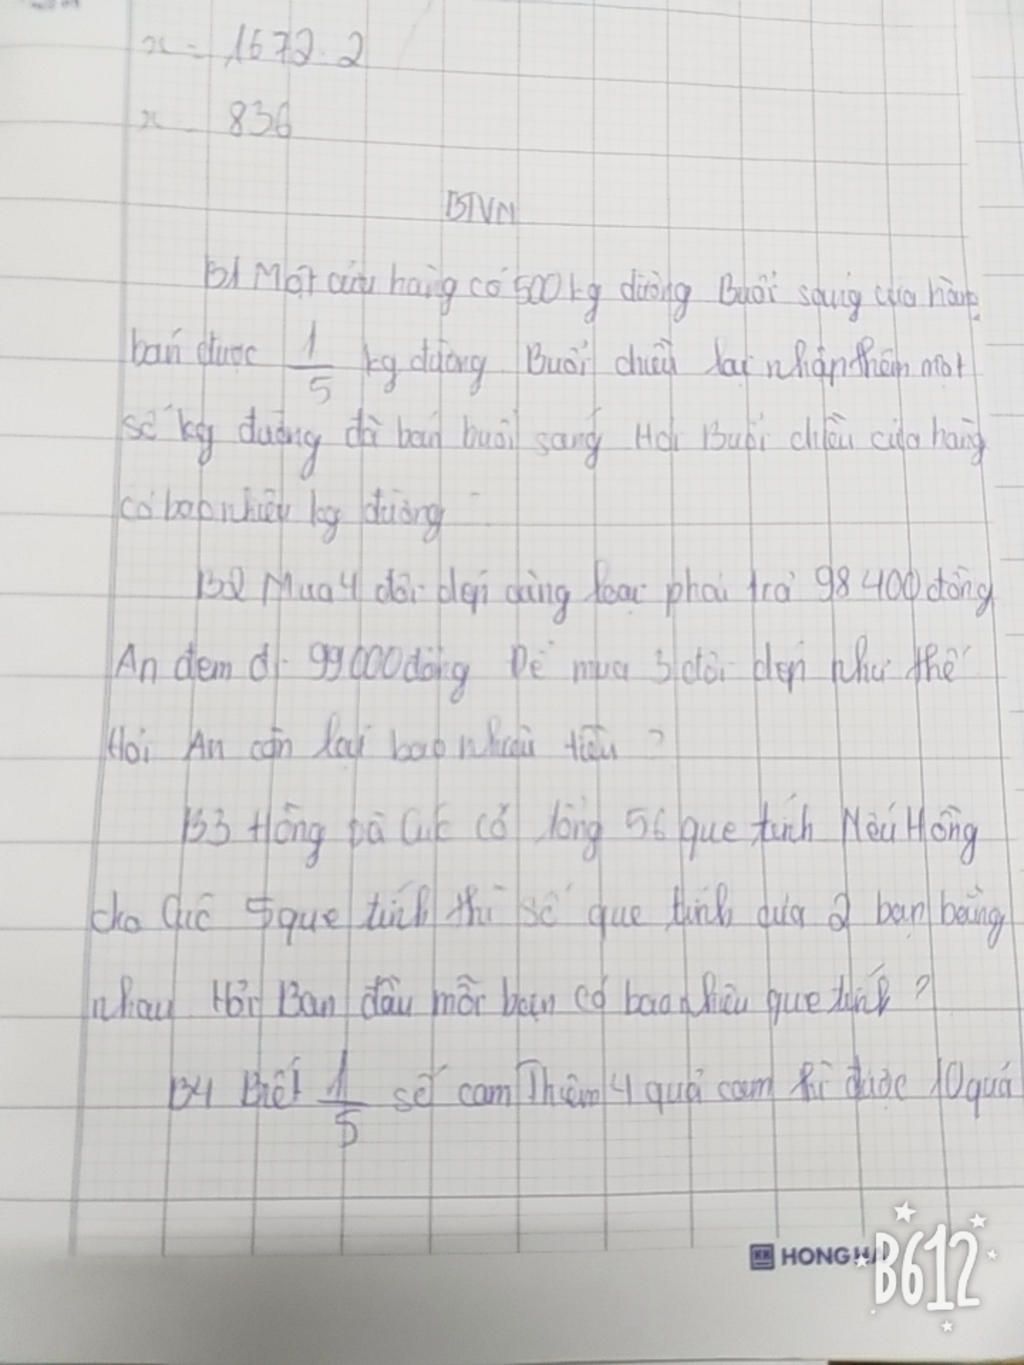 x = 1672 : 2
x = 836
BTVN
B1 Một cửa hàng có 500 kg đường Buổi sáng cửa hàng
bán được 1/5 kg đường Buổi chiều lại nhận thêm một
số kg đường đã bán buổi sáng Hỏi Buổi chiều cửa hàng
có bao nhiêu kg đường
B2 Mua 4 đôi dép cùng loại phải trả 98 400 đồng
An đem đi 99 000 đồng Để mua 3 đôi dép như thế
Hỏi An còn lại bao nhiêu tiền ?
B3 Hồng và Cúc có tổng 56 que tính Nếu Hồng
cho Cúc 5 que tính thì số que tính của 2 bạn bằng
nhau Hỏi Ban đầu mỗi bạn có bao nhiêu que tính ?
B4 Biết 1/5 số cam Thêm 4 quả cam thì được 10 quả
HONG HA
B612